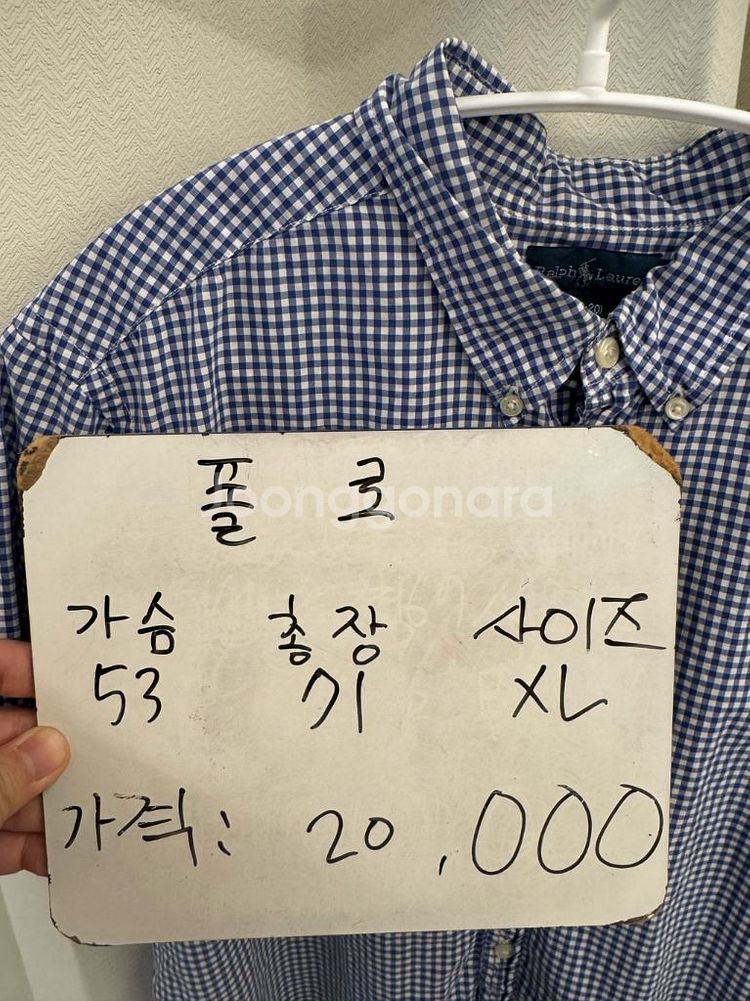 Ralph Lauren
폴로
joonggonara
가슴 총장 사이즈
53 71 XL
가격: 20,000